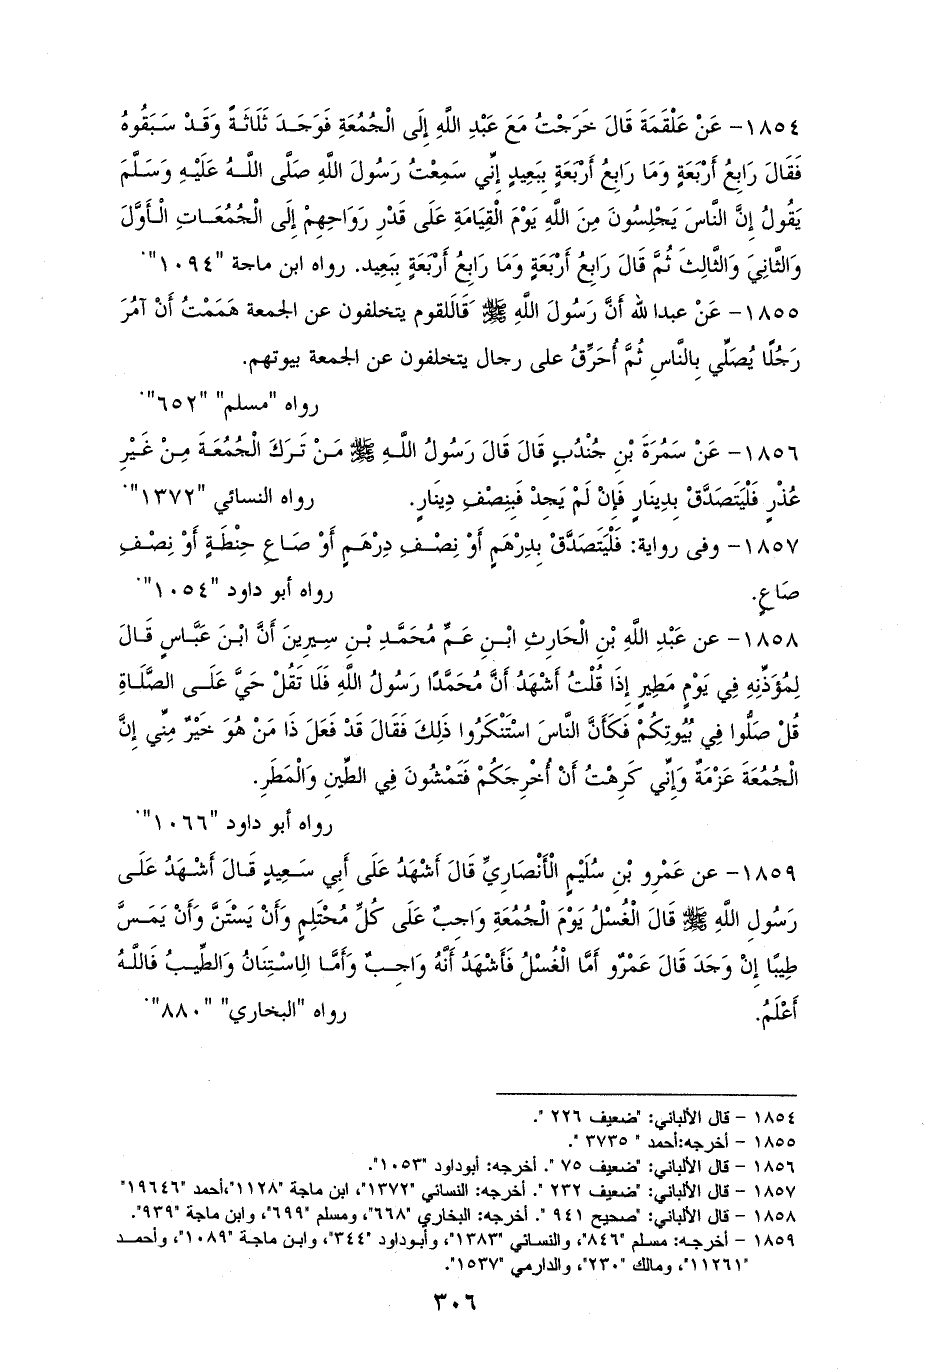 ١٨٥٤- عَنْ عَلْقَمَةَ قَالَ خَرَجْتُ مَعَ عَبْدِ اللَّهِ إِلَى الْجُمُعَةِ فَوَجَدَ ثَلَاثَةً وَقَدْ سَبَقُوهُ
فَقَالَ رَابِعُ أَرْبَعَةٍ وَمَا رَابِعُ أَرْبَعَةٍ بِبَعِيدٍ إِنِّي سَمِعْتُ رَسُولَ اللَّهِ صَلَّى اللَّهُ عَلَيْهِ وَسَلَّمَ
يَقُولُ إِنَّ النَّاسَ يَجْلِسُونَ مِنَ اللَّهِ يَوْمَ الْقِيَامَةِ عَلَى قَدْرِ رَوَاحِهِمْ إِلَى الْجُمُعَاتِ الْأَوَّلَ
وَالثَّانِيَ وَالثَّالِثَ ثُمَّ قَالَ رَابِعُ أَرْبَعَةٍ وَمَا رَابِعُ أَرْبَعَةٍ بِبَعِيد. رواه ابن ماجة "١٠٩٤".
١٨٥٥- عَنْ عبدالله أَنَّ رَسُولَ اللَّهِ ﷺ قَاَللقوم يتخلفون عن الجمعة هَمَمْتُ أَنْ آمُرَ
رَجُلًا يُصَلِّي بِالنَّاسِ ثُمَّ أُحَرِّقُ على رجال يتخلفون عن الجمعة بيوتهم.
رواه "مسلم" "٦٥٢".
١٨٥٦- عَنْ سَمُرَةَ بْنِ جُنْدُبٍ قَالَ قَالَ رَسُولُ اللَّهِ ﷺ مَنْ تَرَكَ الْجُمُعَةَ مِنْ غَيْرِ
عُذْرٍ فَلْيَتَصَدَّقْ بِدِينَارٍ فَإِنْ لَمْ يَجِدْ فَبِنِصْفِ دِينَارٍ. رواه النسائي "١٣٧٢".
١٨٥٧- وفى رواية: فَلْيَتَصَدَّقْ بِدِرْهَمٍ أَوْ نِصْفِ دِرْهَمٍ أَوْ صَاعِ حِنْطَةٍ أَوْ نِصْفِ
صَاعٍ. رواه أبو داود "١٠٥٤".
١٨٥٨- عن عَبْدِ اللَّهِ بْنِ الْحَارِثِ ابْنِ عَمِّ مُحَمَّدِ بْنِ سِيرِينَ أَنَّ ابْنَ عَبَّاسٍ قَالَ
لِمُؤَذِّنِهِ فِي يَوْمٍ مَطِيرٍ إِذَا قُلْتَ أَشْهَدُ أَنَّ مُحَمَّدًا رَسُولُ اللَّهِ فَلَا تَقُلْ حَيَّ عَلَى الصَّلَاةِ
قُلْ صَلُّوا فِي بُيُوتِكُمْ فَكَأَنَّ النَّاسَ اسْتَنْكَرُوا ذَلِكَ فَقَالَ قَدْ فَعَلَ ذَا مَنْ هُوَ خَيْرٌ مِنِّي إِنَّ
الْجُمُعَةَ عَزْمَةٌ وَإِنِّي كَرِهْتُ أَنْ أُخْرِجَكُمْ فَتَمْشُونَ فِي الطِّينِ وَالْمَطَرِ.
رواه أبو داود "١٠٦٦".
١٨٥٩- عن عَمْرِو بْنِ سُلَيْمٍ الْأَنْصَارِيِّ قَالَ أَشْهَدُ عَلَى أَبِي سَعِيدٍ قَالَ أَشْهَدُ عَلَى
رَسُولِ اللَّهِ ﷺ قَالَ الْغُسْلُ يَوْمَ الْجُمُعَةِ وَاجِبٌ عَلَى كُلِّ مُحْتَلِمٍ وَأَنْ يَسْتَنَّ وَأَنْ يَمَسَّ
طِيبًا إِنْ وَجَدَ قَالَ عَمْرٌو أَمَّا الْغُسْلُ فَأَشْهَدُ أَنَّهُ وَاجِبٌ وَأَمَّا الِاسْتِنَانُ وَالطِّيبُ فَاللَّهُ
أَعْلَمُ. رواه "البخاري" "٨٨٠".
١٨٥٤ - قال الألباني: "ضعيف ٢٢٦ ".
١٨٥٥ - أخرجه:أحمد " ٣٧٣٥ ".
١٨٥٦ - قال الألباني: "ضعيف ٧٥ ". أخرجه: أبوداود "١٠٥٣".
١٨٥٧ - قال الألباني: "ضعيف ٢٣٢ ". أخرجه: النسائي "١٣٧٢"، ابن ماجة "١١٢٨"،أحمد "١٩٦٤٦"
١٨٥٨ - قال الألباني: "صحيح ٩٤١ ". أخرجه: البخاري "٦٦٨"، ومسلم "٦٩٩"، وابن ماجة "٩٣٩".
١٨٥٩ - أخرجه: مسلم "٨٤٦"، والنسائي "١٣٨٣"، وأبوداود "٣٤٤"، وابن ماجة "١٠٨٩"، وأحمد
"١١٢٦١"، ومالك "٢٣٠"، والدارمي "١٥٣٧".
٣٠٦